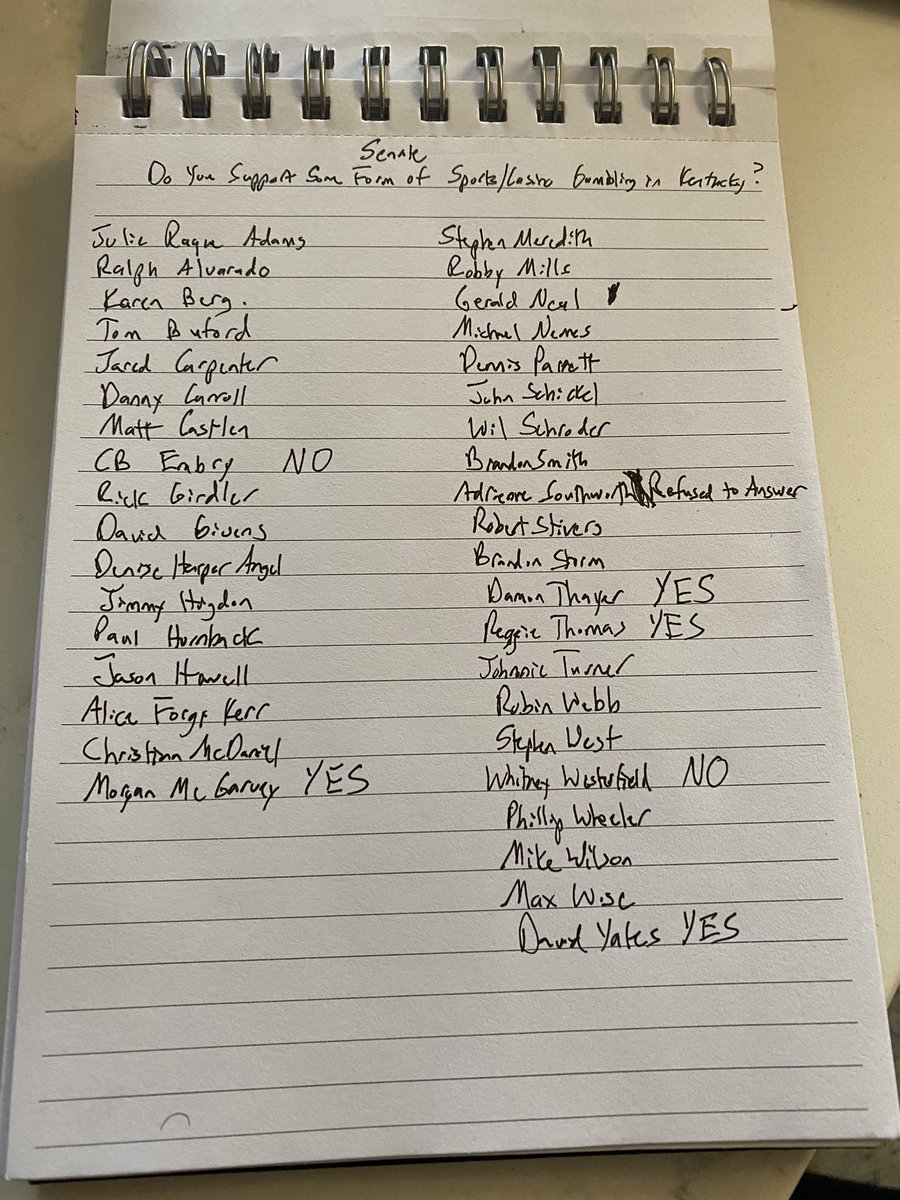 Senate
Do You Support Some Form of Sports/Casino Gambling in Kentucky?
Julie Raque Adams
Ralph Alvarado
Karen Berg.
Tom Buford
Jared Carpenter
Danny Carroll
Matt Castlen
CB Embry NO
Rick Girdler
David Givens
Denise Harper Angel
Jimmy Higdon
Paul Hornback
Jason Howell
Alice Forgy Kerr
Christian McDaniel
Morgan McGarvey YES
Stephen Meredith
Robby Mills
Gerald Neal
Michael Nemes
Dennis Parrett
John Schickel
Wil Schroder
Brandon Smith
Adrienne Southworth Refused to Answer
Robert Stivers
Brandon Storm
Damon Thayer YES
Reggie Thomas YES
Johnnie Turner
Robin Webb
Stephen West
Whitney Westerfield NO
Phillip Wheeler
Mike Wilson
Max Wise
David Yates YES